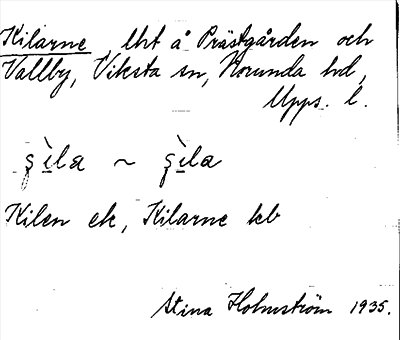 Kilarne, lht å Prästgården och
Vallby, Viksta sn, Norunda hd,
Upps. l.
şìla ~ şìla
Kilen ek, Kilarne kb
Stina Holmström 1935.